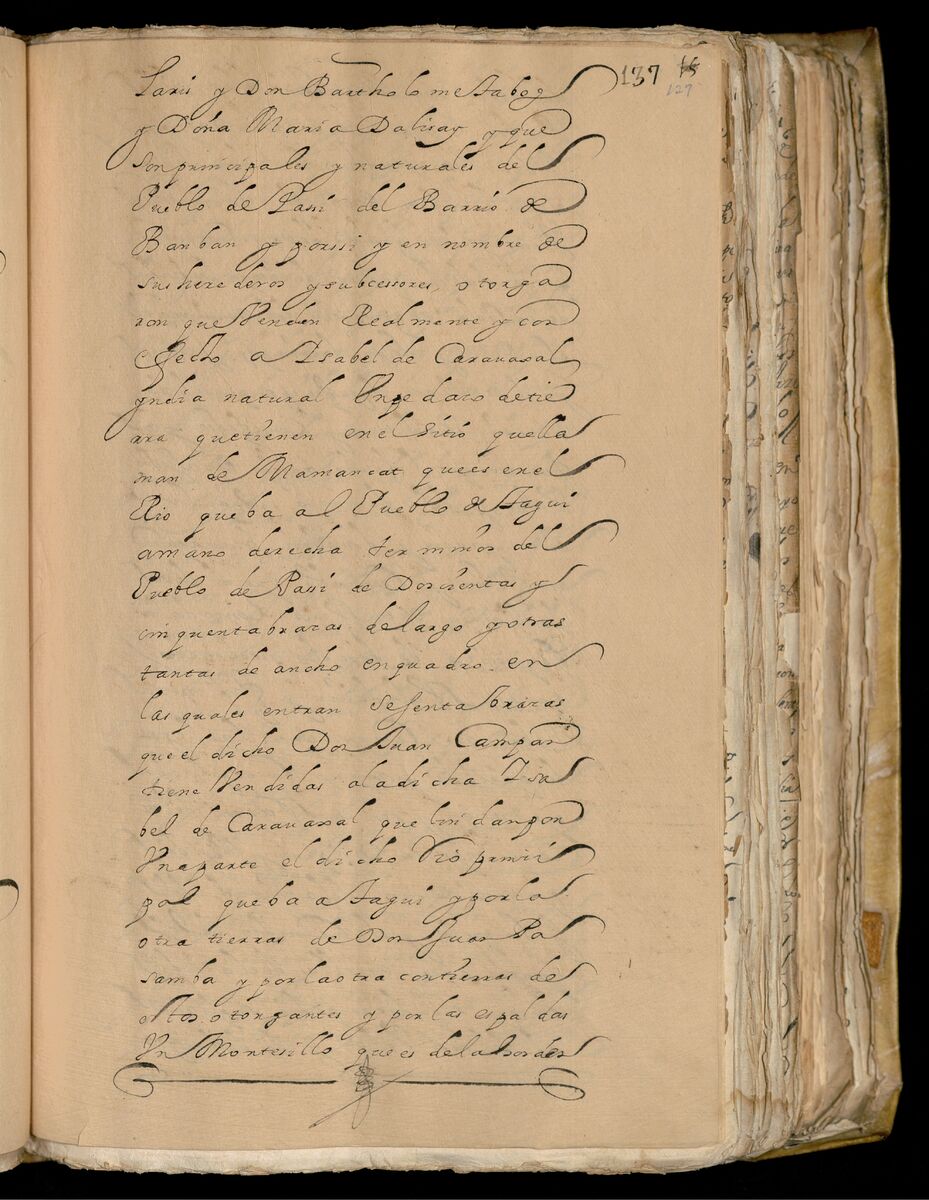 137 15
127
Laris y Don Bartholome tabog
y Doña Maria Dalisay y que
son principales y naturales del
Pueblo de Passi del Barrio de
Banban y porssi y en nombre de
sus herederos y subcessores, otorga
ron que Venden Realmente y con
efecto a Isabel de Carauaxal
yndia natural Un pedaco de tie
rra que tienen en el sitio que lla
man de Mamancat que es en el
Rio que ba al Pueblo de tagui
amano derecha terminos del
Pueblo de Passi de Dorcientas y
cinquenta bracas de largo y otras
tantas de ancho en quadro. en
las quales entran sesenta bracas
que el dicho Don Juan Campan
tiene Vendidas a la dicha Isa
bel de Carauaxal que lindan por
Una parte el dicho Rio princi
pal que ba a tagui y por la
otra tierras de Don Juan Pa
samba y por la otra con tierras de
estos otorgantes y por las espaldas
Un Montesillo que es de la horden